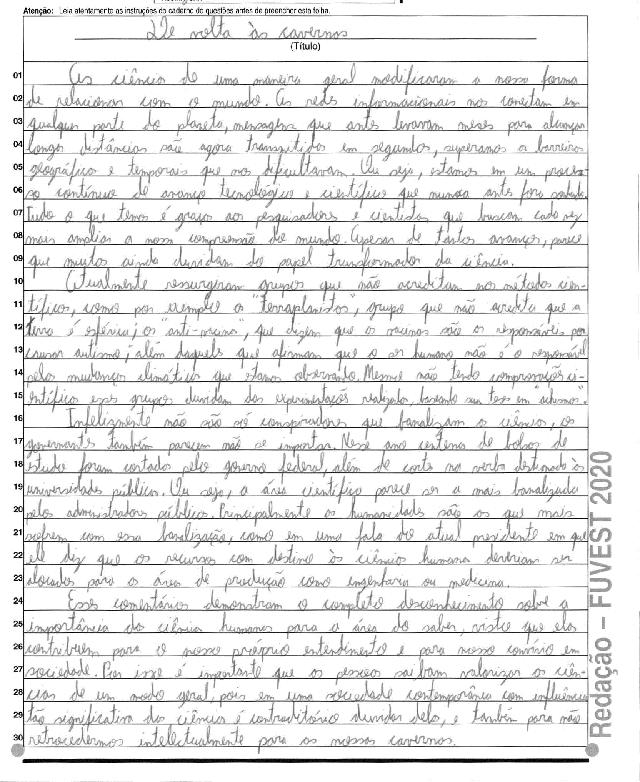 Atenção: Leia atentamente as instruções do caderno de questões antes de preencher esta folha.
De volta às cavernas
(Título)
01 As ciência de uma maneira geral modificaram a nossa forma
02 de relacionar com o mundo. As redes informacionais nos conectam em
03 qualquer parte do planeta, mensagens que antes levavam meses para alcançar
04 longas distâncias são agora transmitidas em segundos, superamos a barreiras
05 geográficas e temporais que nos dificultavam. Ou seja, estamos em um proces-
06 so contínuo de avanço tecnológico e científico que nunca antes fora
07 Tudo o que temos é graças aos pesquisadores e cientistas que buscam cada vez
08 mais ampliar a nossa compreensão do mundo. Apesar de tantos avanços, parece
09 que muitos ainda duvidam do papel transformador da ciência.
10 Atualmente ressurgiram grupos que não acreditam nos métodos cien-
11 tíficos, como por exemplo os "terraplanistas", grupo que não acredita que a
12 terra é esférica; os "anti-vacina", que dizem que as vacinas são os responsáveis por
13 causar autismo; além daqueles que afirmam que o ser humano não é o responsável
14 pelas mudanças climáticas que estamos observando. Mesmo não tendo comprovações ci-
15 entíficas esses grupos duvidam das experimentações realizadas, baseando sua tese em "achismos".
16 Infelizmente não são só conspiradores que banalizam a ciência, os
17 governantes também parecem não se importar. Nesse ano centenas de bolsas de
18 estudo foram cortados pelo governo federal, além de corte na verba destinada às
19 universidades públicas. Ou seja, a área científica parece ser a mais banalizada
20 pelos administradores públicos. Principalmente as humanidades são as que mais
21 sofrem com essa banalização, como em uma fala do atual presidente em que
22 ele diz que os recursos com destino às ciências humana deveriam ser
23 alocados para as áreas de produção como engenharia ou medicina.
24 Esses comentários demonstram o completo desconhecimento sobre a
25 importância da ciência humanas para a área do saber, visto que elas
26 contribuem para o nosso próprio entendimento e para nosso convívio em
27 sociedade. Por isso é importante que as pessoas saibam valorizar as ciên-
28 cias de um modo geral, pois em uma sociedade contemporânea com influência
29 tão significativa das ciências é contraditório duvidar delas, e também para não
30 retrocedermos intelectualmente para as nossas cavernas.
Redação – FUVEST 2020